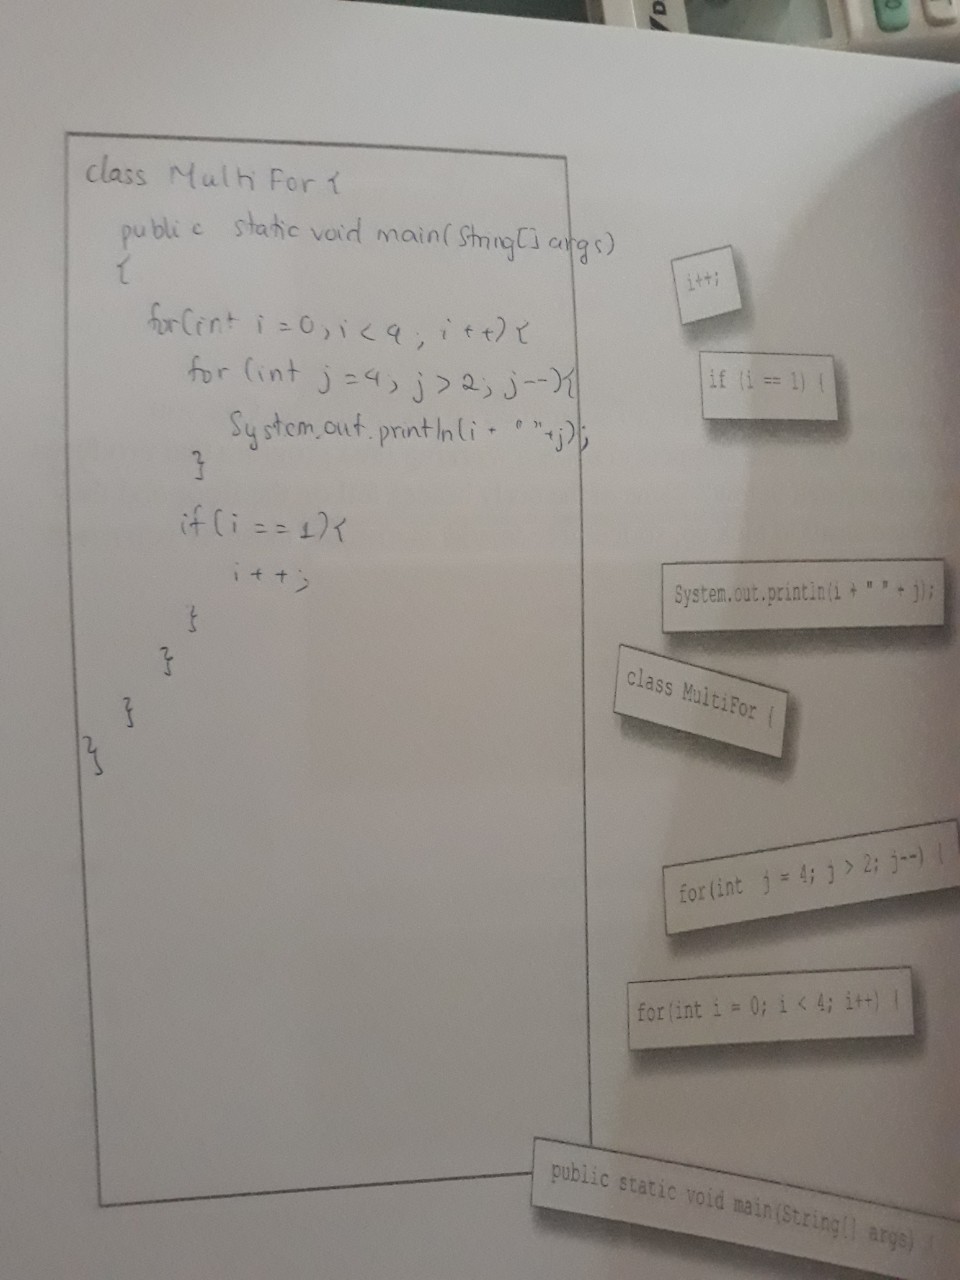 class MultiFor {
public static void main(String[] args)
{
for(int i = 0, i < 4; i++) {
for (int j = 4; j > 2; j--){
System.out.println(i + " "+j);
}
if(i == 1){
i++;
}
}
}
}
i++;
if (i == 1) {
System.out.println(i + " " + j);
class MultiFor {
for(int j = 4; j > 2; j--) {
for(int i = 0; i < 4; i++) {
public static void main(String[] args) {